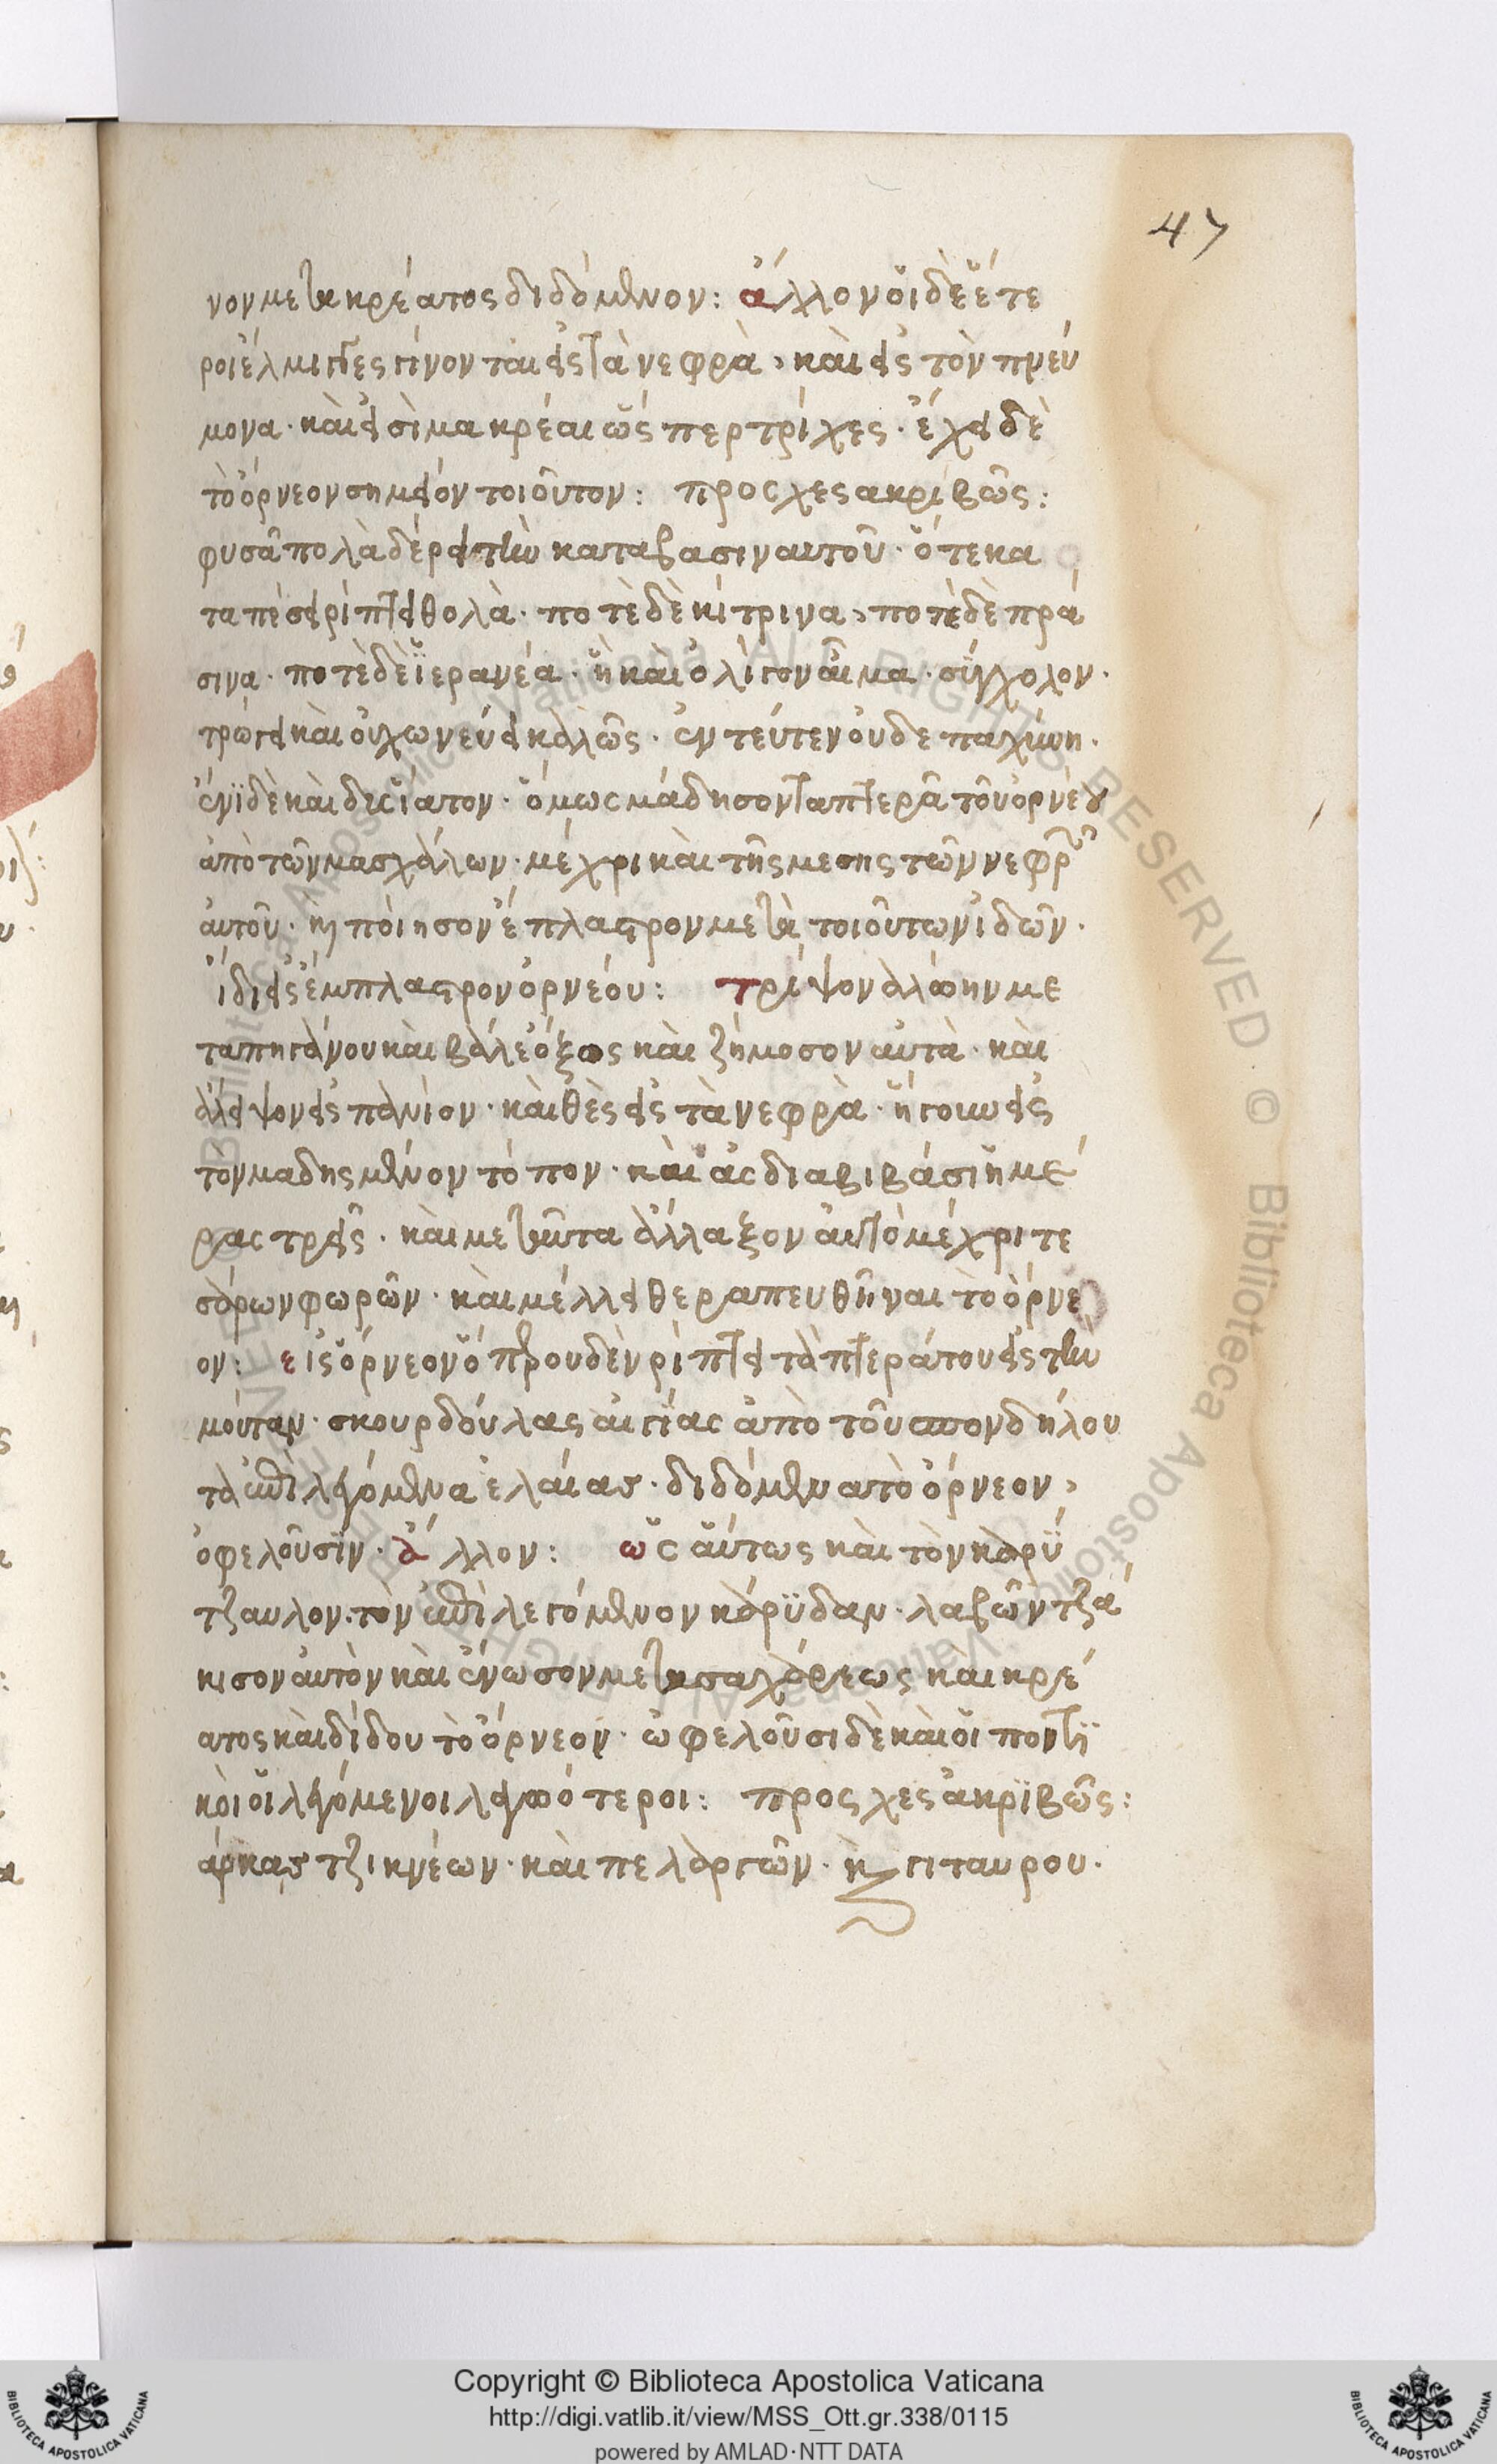 47
νον μετα κρέατος διδόμενον: ἄλλον οἵ δὲ ἕτε
ροι ἕλμιγγες γίνονται εἰς τὰ νεφρὰ, καὶ εἰς τὸν πνεύ
μονα. καὶ εἰσὶ μακρέαι ὥς περ τρίχες. ἔχει δὲ
τὸ ὄρνεον σημεῖον τοιοῦτον: προσχες ακρίβῶς:
φυσᾶ πολὰ δέρει τὴν καταβασιν αυτοῦ. ὅτε κα
ταπέσει ρίπτει θολὰ. ποτὲ δὲ κίτρινα, ποτὲ δὲ πρά
σινα. ποτὲ δὲ ἵερανέα. ἢ καὶ ὀλίγον αἷμα. σύγχολον.
τρώγει καὶ οὐ χωνεύει καλῶς. ἐντεύτεν οὐδε παχύνη.
ἔνϊ δὲ καὶ δισΐατον. ὅμως μάδησον τα πτερᾶ τοῦ ὀρνέου
ἀπὸ τῶν μασχάλων. μέχρι καὶ τῆς μεσης τῶν νεφρῶν
ἀυτοῦ. καὶ ποίησον ἔπλαστρον μετὰ τοιοῦτων ἰδῶν.
ἴδι εἰς ἔμπλαστρον ὀρνέου: τρίψον αλόην με
τα πηγάνου καὶ βάλε ὄξος καὶ ζήμοσον αὐτὰ. καὶ
ἄλειψον εἰς πανίον. καὶ θὲς εἰς τὰ νεφρὰ. ἤγουν εἰς
τὸν μαδησμένον τόπον. καὶ ἂς διαβιβάσι ἡμέ
ρας τρεῖς. καὶ μετὰ ταῦτα ἄλλαξον ἀυτὸ μέχρι τε
σάρων φωρῶν. καὶ μέλλει θεραπευθῆναι τὸ ὄρνε
ον: εἰς ὄρνεον ὅπερ ουδὲν ρίπτει τὰ πτερά του εἰς τὴν
μούταν. σκουρδούλας αἰγίας ἀπὸ τοῦ σπονδήλου
τὰ ἐπιλεγόμενα ἐλαίας. διδόμενα τὸ ὄρνεον,
ὀφελοῦσϊν. ἄλλον: ὡς αὕτως καὶ τὸν καρύ
τζαυλον. τὸν ἐπιλεγόμενον κάρϋδαν. λαβῶν τζά
κισον ἀυτὸν καὶ ἕνωσον μετα σαχάρεως καὶ κρέ
ατος καὶ δίδου τὸ ὄρνεον. ὠφελοῦσι δὲ καὶ οἵ ποντϊ
κοὶ οἵ λεγόμενοι λειπότεροι: προσχες ἀκρϊβῶς:
άρκας τζικνέων. καὶ πελαργῶν. καὶ γιταυρου.
Copyright © Biblioteca Apostolica Vaticana
http://digi.vatlib.it/view/MSS_Ott.gr.338/0115
powered by AMLAD·NTT DATA